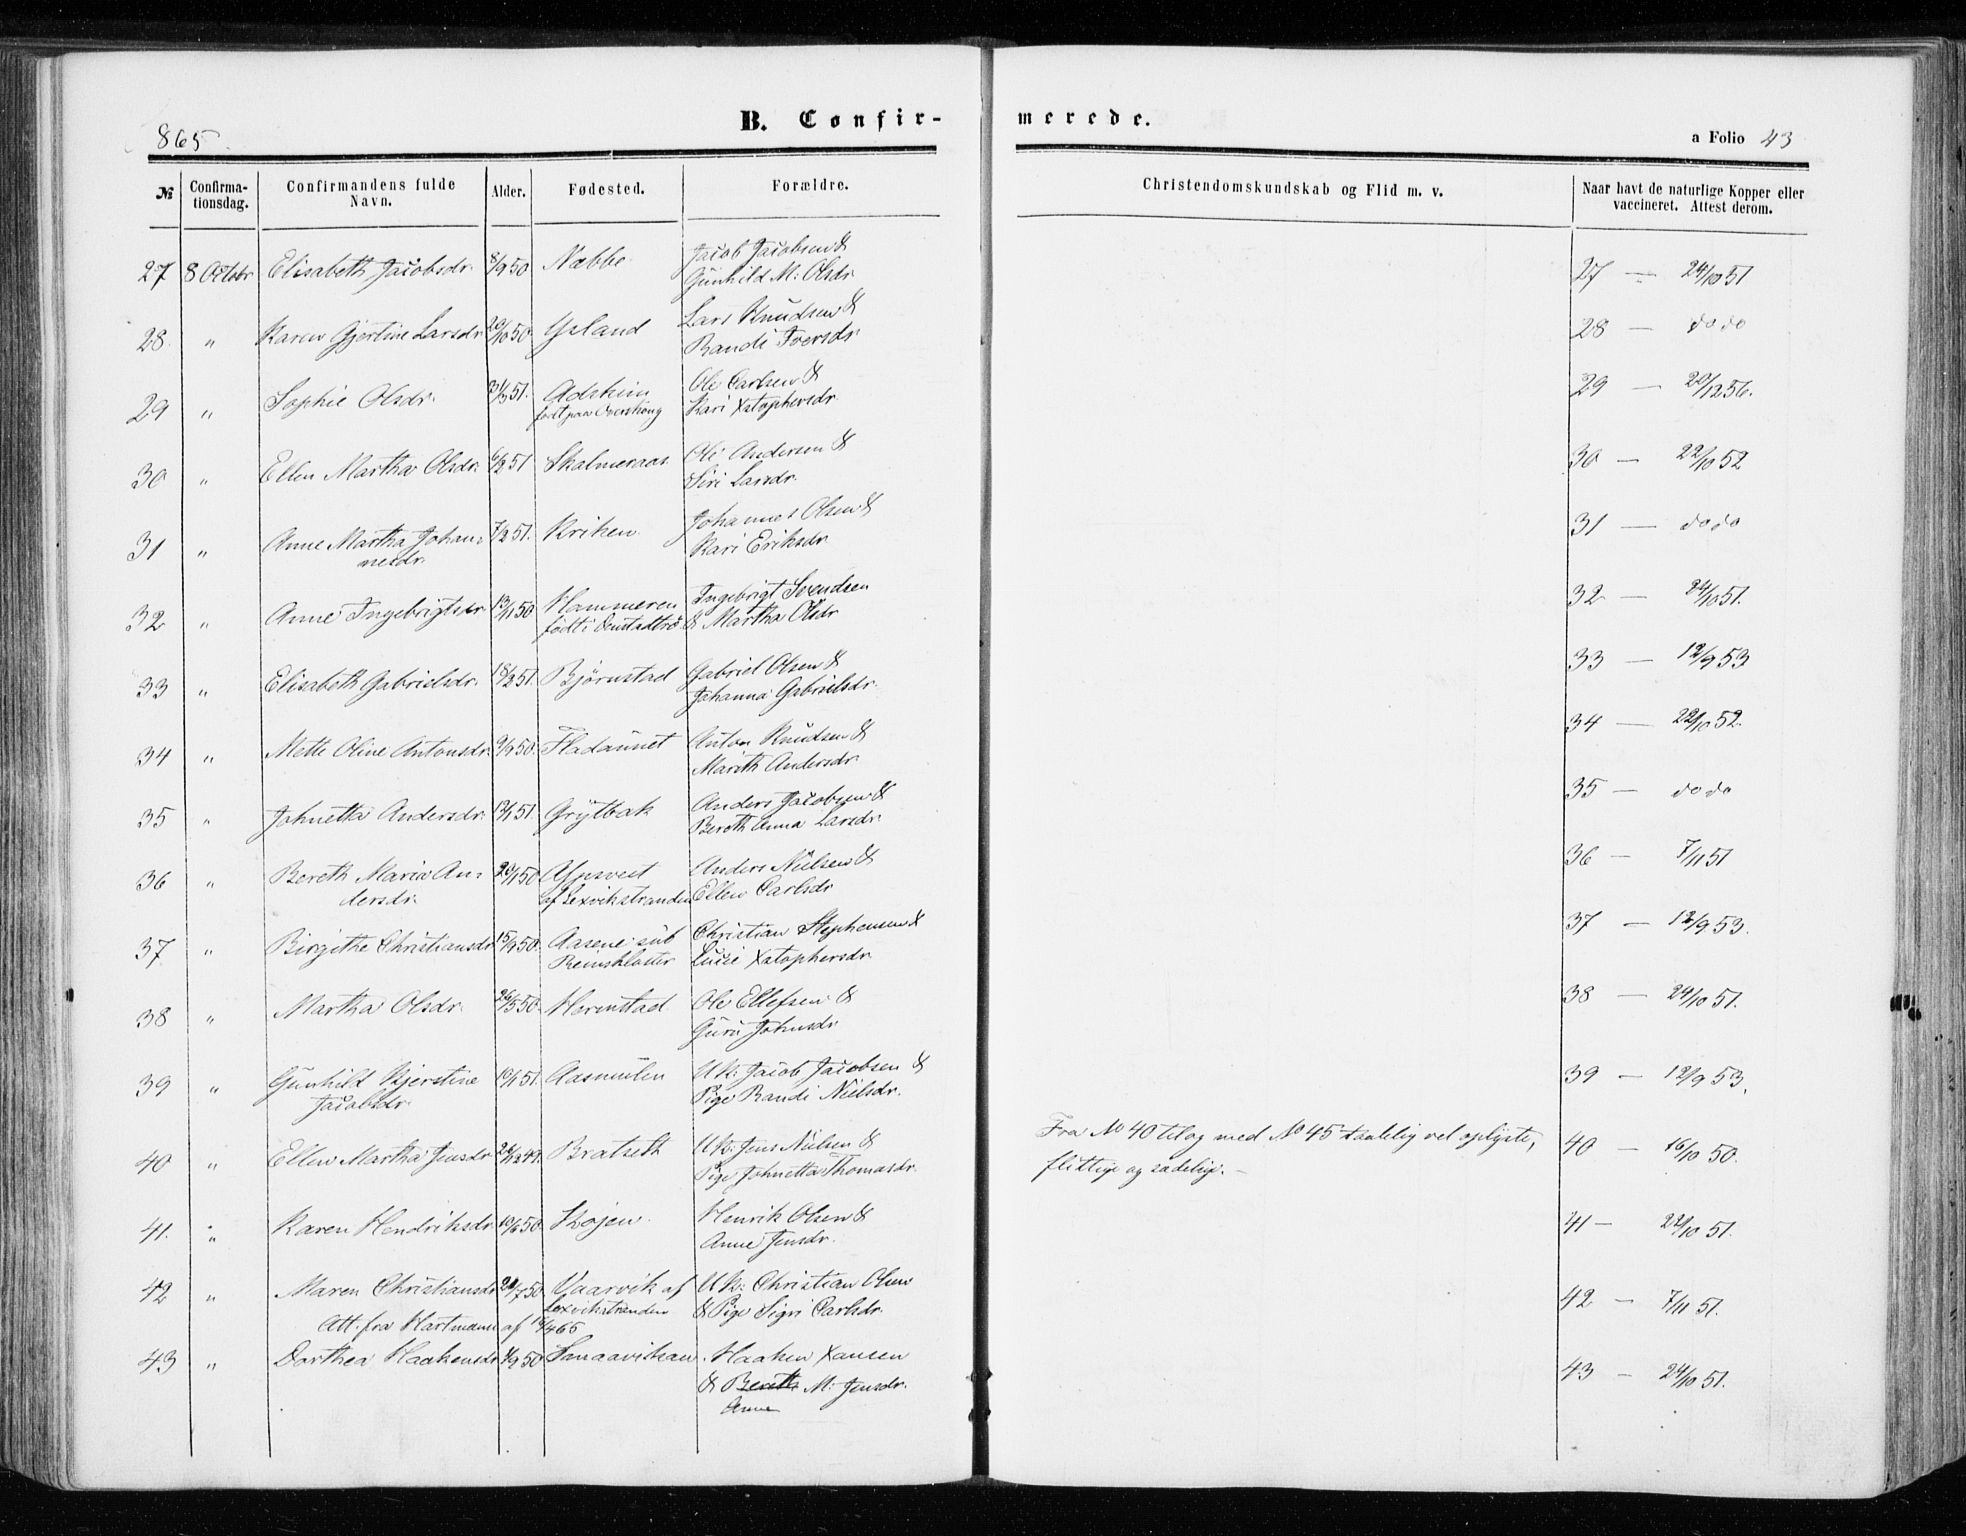 B. Confir-
merede.
865
a Folio 43
№ Confirma-tionsdag. Confirmandens fulde Navn. Alder. Fødested. Forældre. Christendomskundskab og Flid m. v. Naar havt de naturlige Kopper eller vaccineret. Attest derom.
27 8 Octobr Elisabeth Jacobsdr. 8/9 50 Næbbe Jacob Jacobsen & 27 — 24/10 51
Gunhild M: Olsdr.
28 " Karen Gjertine Larsdr 20/10 50 Ysland Lars Knudsen & 28 — do do
Randi Iversdr.
29 " Sophie Olsdr. 51. Adsheim Ole Carlsen & 29 — 20/12 56.
født paa Kari Xstophersdr.
30 " Ellen Martha Olsdr. 6/2 51 Skalmeraas Ole Andersen & 30 — 22/10 52
Siri Larsdr.
31 " Anne Martha Johan- 7/2 51. Kriken Johannes Olsen & 31 — do do
nesdr. Kari Eriksdr.
32 " Anne Ingebrigtsdr 13/11 50 Hammeren Ingebrigt Svendsen 32 — 24/10 51.
født i & Martha Olsdr
33 " Elisabeth Gabrielsdr. 18/2 51. Bjørnstad Gabriel Olsen & 33 — 12/9 53
Johanna Gabrielsdr.
34 " Mette Oline Antonsdr. 9/9 50. Fladaunet Anton Knudsen & 34 — 22/10 52.
Marith Andersdr.
35 " Johnetta Andersdr. 13/1 51. Grytbak Anders Jacobsen & 35 — do do
Bereth Anna Larsdr.
36 " Bereth Maria An- 50 Anders Nielsen & 36 — 7/11 51
dersdr. af Lexvikstranden Ellen Carlsdr
37 " Birgithe Christiansdr 15/9 50. Aasene sub Christian Stephensen & 37 — 12/9 53.
Reinskloster Lucie Xstophersdr.
38 " Martha Olsdr. 26/5 50. Herrnstad Ole Ellefsen & 38 — 24/10 51.
Guru Johnsdr
39 " Gunhild Kjerstine 10/1 51. Aasmulen UK: Jacob Jacobsen & 39 — 12/9 53.
Jacobsdr. Pige Randi Nielsdr.
Fra No 40 til og med No 45 taalelig vel oplyste,
flittige og sædelige. —
40 " Ellen Martha Jensdr. 49. Bratseth UK: Jens Nielsen & 40 — 16/10 50.
Pige Johnetta Thomasdr.
41. " Karen Hendriksdr. 10/6 50. Skojen Henrik Olsen & 41 — 22/10 51.
Anne Jensdr.
42 " Maren Christiansdr 50. Vaarvik af UK: Christian Olsen 42 — 7/11 51.
Lexvikstranden & Pige Sigri Carlsdr.
Att. fra Hartmann af 65
43 " Dorthea Haakensdr 50 Smaavikan Haaken Xansen 43 — 24/10 51.
& Bereth M: Jensdr.
Anne